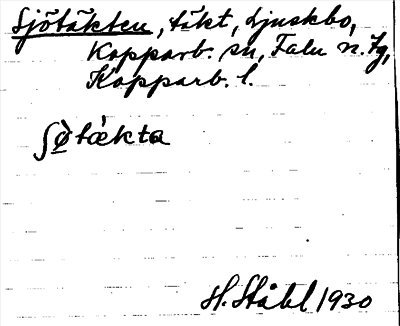 Sjötäkten, täkt, Ljuskbo,
Kopparb. sn, Falu n. tg,
Kopparb. l.
ʃø̀tæ̀kta
H. Ståhl 1930